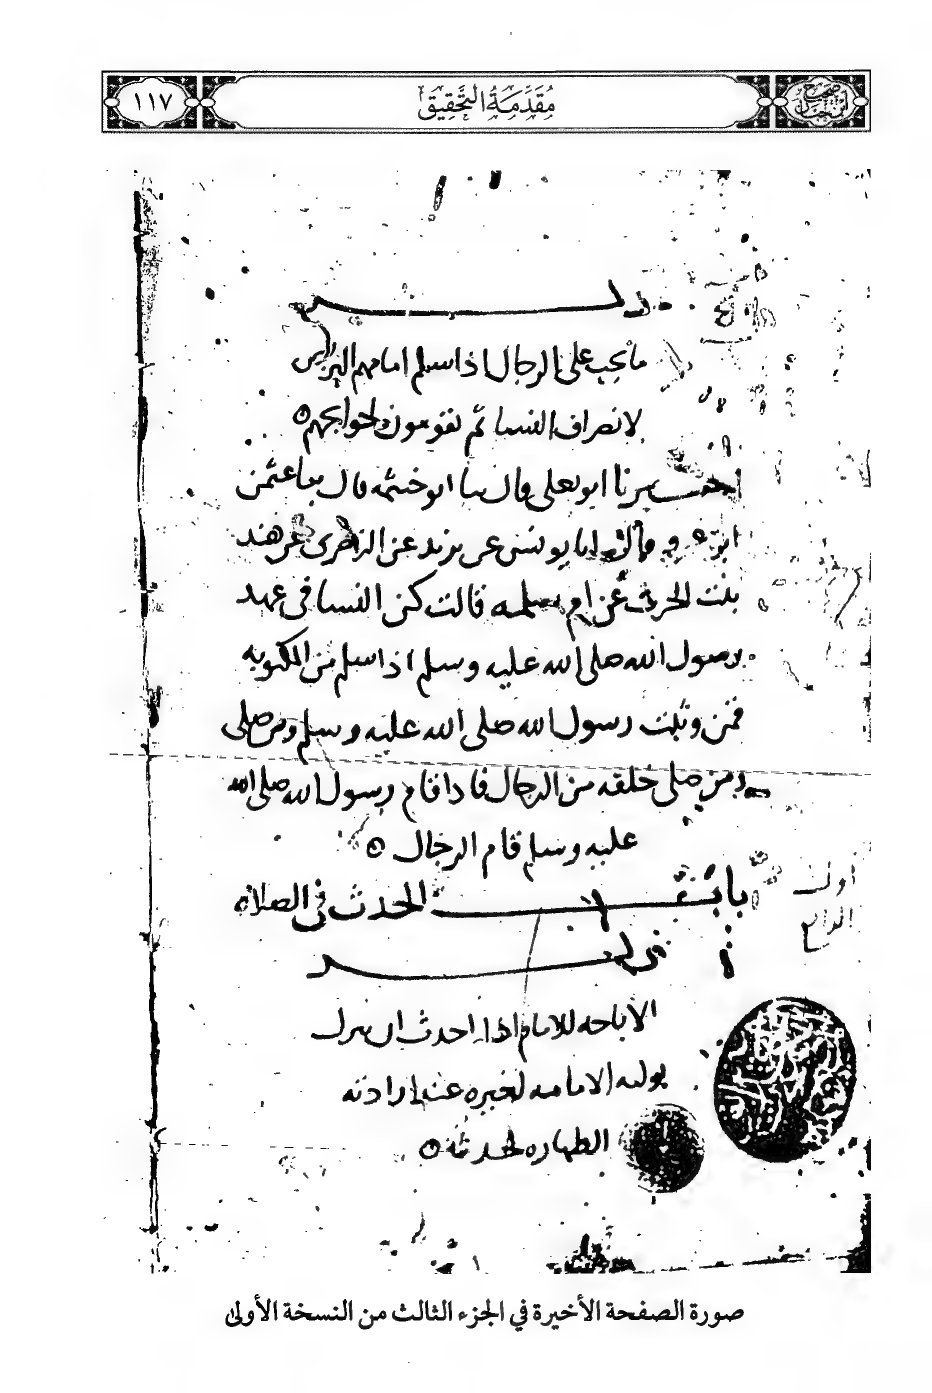 ١١٧
مقدمة التحقيق
ذكر
ما يجب على الرجال اذا سلم امامهم التربص
لانصراف النسا ثم يقومون لحوائجهم
اخبرنا ابو يعلى قال ثنا ابو خيثمه قال ثنا عثمن
ابن عمر وقال انا يونس عن يزيد عن الزهرى عن هند
بنت الحرث عن ام سلمه قالت كن النسا فى عهد
رسول الله صلى الله عليه وسلم اذا سلم من المكتوبه
قمن وثبت رسول الله صلى الله عليه وسلم ومن صلى
ومن صلى خلفه من الرجال فاذا قام رسول الله صلى الله
عليه وسلم قام الرجال
باب الحدث فى الصلاة
ذكر
الاباحه للامام اذا احدث ان يترك
توليه الامامه لغيره عند ارادته
الطهاره لحدثه
صورة الصفحة الأخيرة في الجزء الثالث من النسخة الأولى